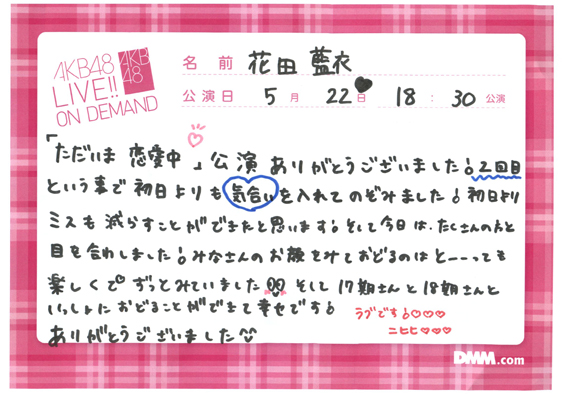 AKB48
LIVE!!
ON DEMAND
AKB
48
名前 花田 藍衣
公演日 5月 22日 18:30公演
「ただいま 恋愛中」公演 ありがとうございました! 2回目
という事で 初日よりも 気合いを入れてのぞみました! 初日より
ミスも 減らすことができたと思います! そして今日は、たくさんの方と
目を合わしました! みなさんのお顔をみておどるのは とーーっても
楽しくて ずっとみていました そして 17期さんと18期さんと
いっしょに おどることができて幸せです!
ラブです!♡♡♡
ありがとうございました
ニヒヒ♡♡♡
DMM.com